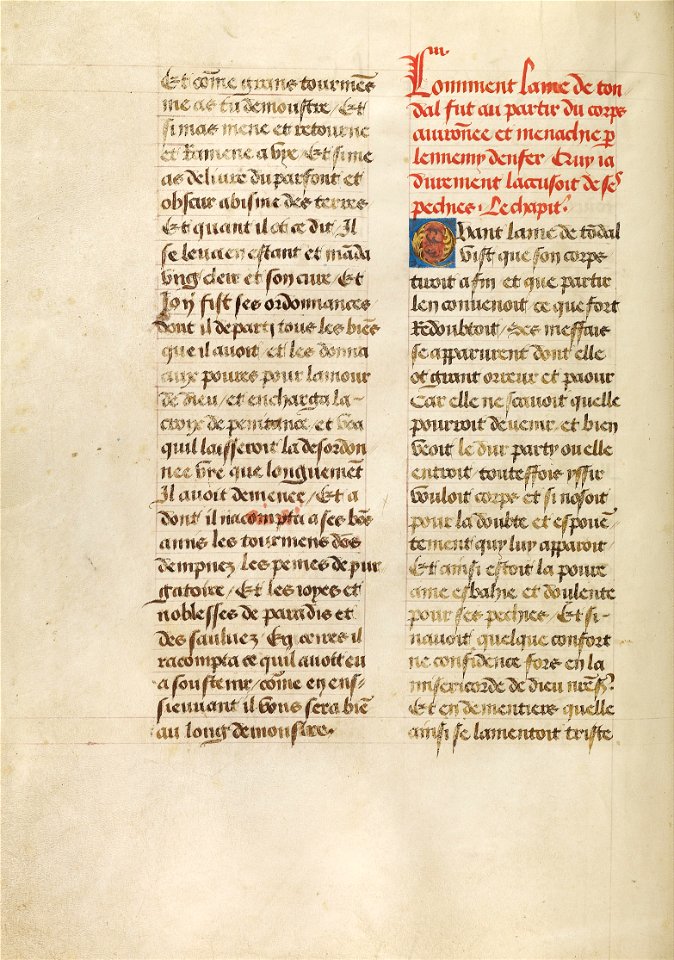 Et cōme grans tourmēs
me as tu demonstre / Et
si mas mene et retourne
et Ramene a vye / Et si me
as delivre du parfont et
obscur abisme des terres
Et quant il ot ce dit / Il
se leva en estant et māda
ung clerc et son cure / Et
la fist ses ordonnances
dont il departi tous les biēs
que il avoit / et les donna
aux poures pour lamour
de dieu / et encharga la
croix de penitance / et voa
quil laisseroit la desordon
nee vye que longuemēt
Il avoit demenee / Et a
dont il racompta a ses bōs
amis les tourmens des
dempnez les peines de pur
gatoire / Et les ioyes et
noblesses de paradis et
des sauluez / Et coēs il
racompta ce quil avoit eu
a soustenir / cōme en ens-
sieuvant il vous sera biē
au long demonstre.
iii
Comment lame de ton
dal fut au partir du corps
avironnee et menachie p
lennemy denfer Et luy ia
durement laccusoit de ses
pechies. Le chapit.
Quant lame de tōdal
vist que son corps
tiroit a fin et que partir
len convenoit ce que fort
Redoubtoit / Ses meffais
se apparurent dont elle
ot grant orreur et paour
Car elle ne scavoit quelle
pourroit devenir et bien
veoit le dur party ou elle
entroit / touteffois yssir
vouloit corps et si nosoit
pour la doubte et espouē
tement quy luy apparoit
Et ainsi estoit la poure
ame esbahie et doulente
pour ses pechies / Et si
navoit quelque confort
ne confidence fors en la
misericorde de dieu nrē sr.
Et en dementiers quelle
ainsi se lamentoit triste